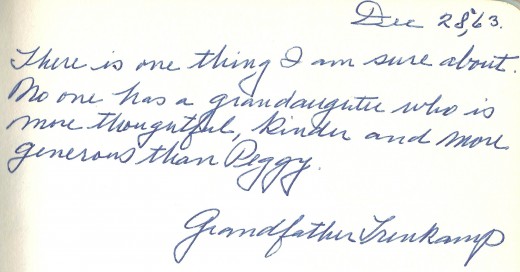 Dec 28, '63.
There is one thing I am sure about.
No one has a grandaughter who is
more thoughtful, kinder and more
generous than Peggy.
Grandfather Trenkamp